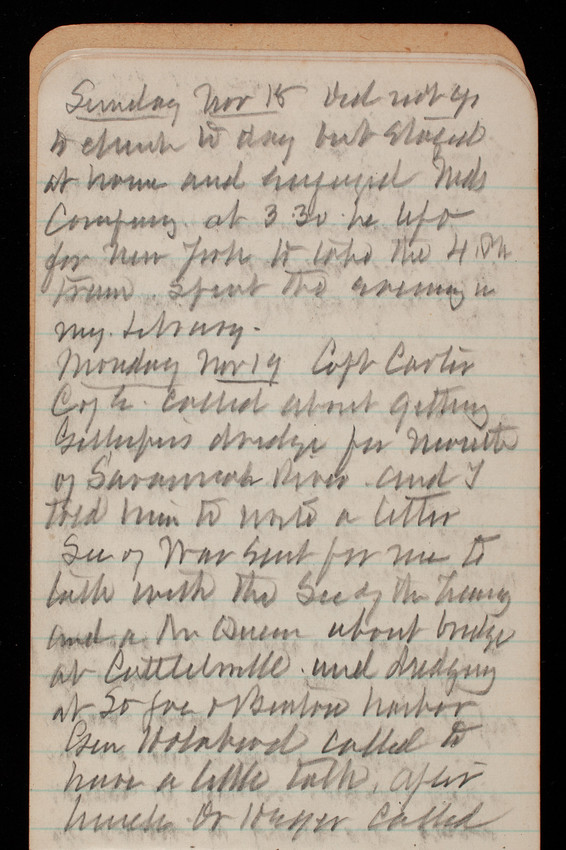 Sunday Nov 18 Did not go
to church to day but stayed
at home and enjoyed Neds
Company. at 3:30 he left
for New York to take the 4 PM
train. Spent the evening in
my library.
Monday Nov 19 Capt Carter
Cof E. called about getting
Gillespies dredge for mouth
of Savannah River and I
told him to write a letter
Sec of War sent for me to
talk with the Sec of the Treasy
and a Mr about bridge
at and dredging
at So Joe & Benton harbor
Gen Holabird called to
have a little talk, after
lunch Dr called